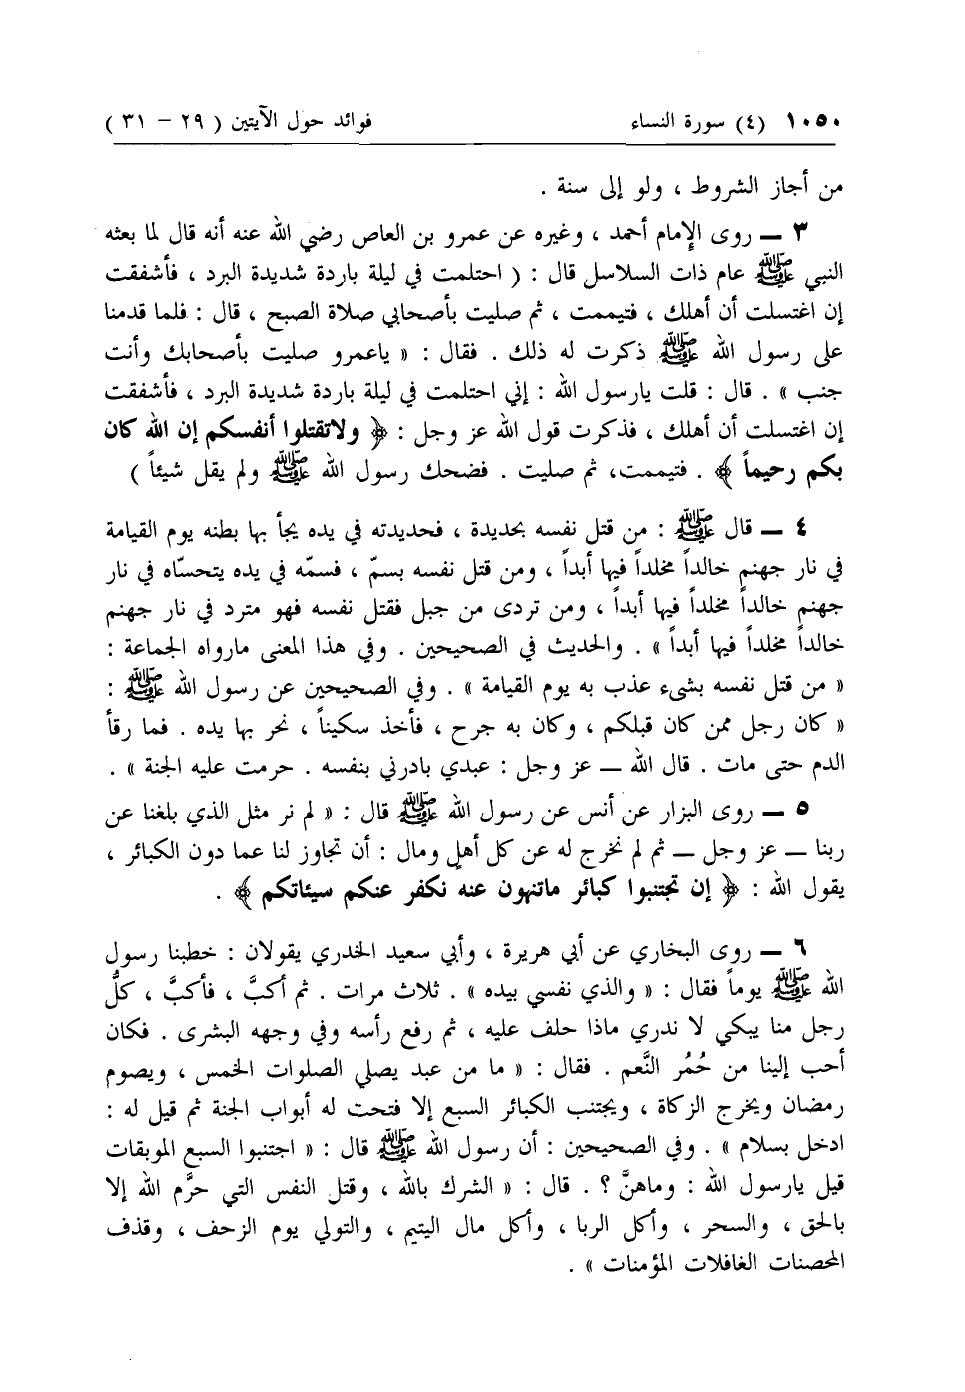 ١٠٥٠ (٤) سورة النساء فوائد حول الآيتين ( ٢٩ – ٣١ )
من أجاز الشروط ، ولو إلى سنة .
٣ ــ روى الإمام أحمد ، وغيره عن عمرو بن العاص رضي الله عنه أنه قال لما بعثه
النبي ﷺ عام ذات السلاسل قال : ( احتلمت في ليلة باردة شديدة البرد ، فأشفقت
إن اغتسلت أن أهلك ، فتيممت ، ثم صليت بأصحابي صلاة الصبح ، قال : فلما قدمنا
على رسول الله ﷺ ذكرت له ذلك . فقال : « ياعمرو صليت بأصحابك وأنت
جنب » . قال : قلت يارسول الله : إني احتلمت في ليلة باردة شديدة البرد ، فأشفقت
إن اغتسلت أن أهلك ، فذكرت قول الله عز وجل : ﴿ ولاتقتلوا أنفسكم إن الله كان
بكم رحيماً ﴾ . فتيممت، ثم صليت . فضحك رسول الله ﷺ ولم يقل شيئاً )
٤ ــ قال ﷺ : من قتل نفسه بحديدة ، فحديدته في يده يجأ بها بطنه يوم القيامة
في نار جهنم خالداً مخلداً فيها أبداً ، ومن قتل نفسه بسمّ ، فسمّه في يده يتحسّاه في نار
جهنم خالداً مخلداً فيها أبداً ، ومن تردى من جبل فقتل نفسه فهو مترد في نار جهنم
خالداً مخلداً فيها أبداً » . والحديث في الصحيحين . وفي هذا المعنى مارواه الجماعة :
« من قتل نفسه بشيء عذب به يوم القيامة » . وفي الصحيحين عن رسول الله ﷺ :
« كان رجل ممن كان قبلكم ، وكان به جرح ، فأخذ سكيناً ، نحر بها يده . فما رقأ
الدم حتى مات . قال الله ــ عز وجل : عبدي بادرني بنفسه . حرمت عليه الجنة » .
٥ ــ روى البزار عن أنس عن رسول الله ﷺ قال : « لم نر مثل الذي بلغنا عن
ربنا ــ عز وجل ــ ثم لم نخرج له عن كل أهلٍ ومال : أن تجاوز لنا عما دون الكبائر ،
يقول الله : ﴿ إن تجتنبوا كبائر ماتنهون عنه نكفر عنكم سيئاتكم ﴾ .
٦ ــ روى البخاري عن أبي هريرة ، وأبي سعيد الخدري يقولان : خطبنا رسول
الله ﷺ يوماً فقال : « والذي نفسي بيده » . ثلاث مرات . ثم أكبَّ ، فأكبَّ ، كلُّ
رجل منا يبكي لا ندري ماذا حلف عليه ، ثم رفع رأسه وفي وجهه البشرى . فكان
أحب إلينا من حُمُر النَّعم . فقال : « ما من عبد يصلي الصلوات الخمس ، ويصوم
رمضان ويخرج الزكاة ، ويجتنب الكبائر السبع إلا فتحت له أبواب الجنة ثم قيل له :
ادخل بسلام » . وفي الصحيحين : أن رسول الله ﷺ قال : « اجتنبوا السبع الموبقات
قيل يارسول الله : وماهنَّ ؟ . قال : « الشرك بالله ، وقتل النفس التي حرَّم الله إلا
بالحق ، والسحر ، وأكل الربا ، وأكل مال اليتيم ، والتولي يوم الزحف ، وقذف
المحصنات الغافلات المؤمنات » .